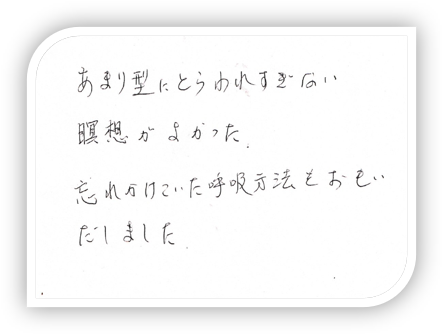 あまり型にとらわれすぎない
瞑想がよかった.
忘れかけていた呼吸方法をおもい
だしました.